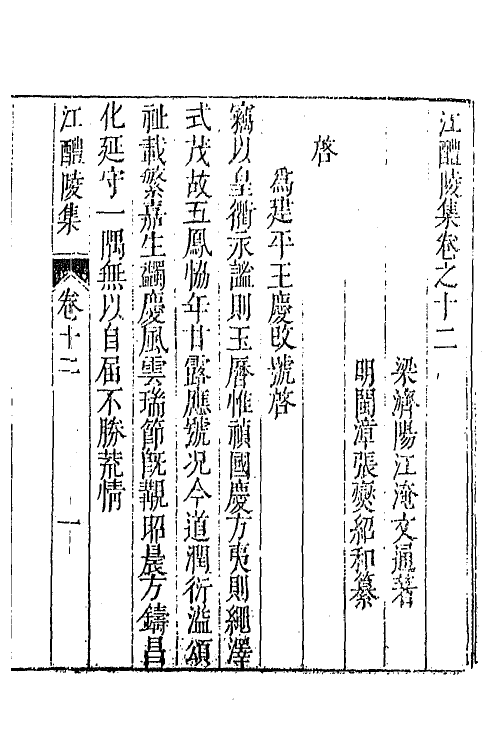 江醴陵集卷之十二
梁濟陽江淹文通著
明閩漳張燮紹和纂
啓
爲建平王慶改號啓
竊以皇衢永謐則玉曆惟禎國慶方夷則繩澤
式茂故五鳳恊年甘露應號况今道潤衍溢頌
祉載繁嘉生蠲慶風雲瑞節旣覿昭晨方鑄昌
化延守一隅無以自届不勝荒情
江醴陵集
卷十二
一